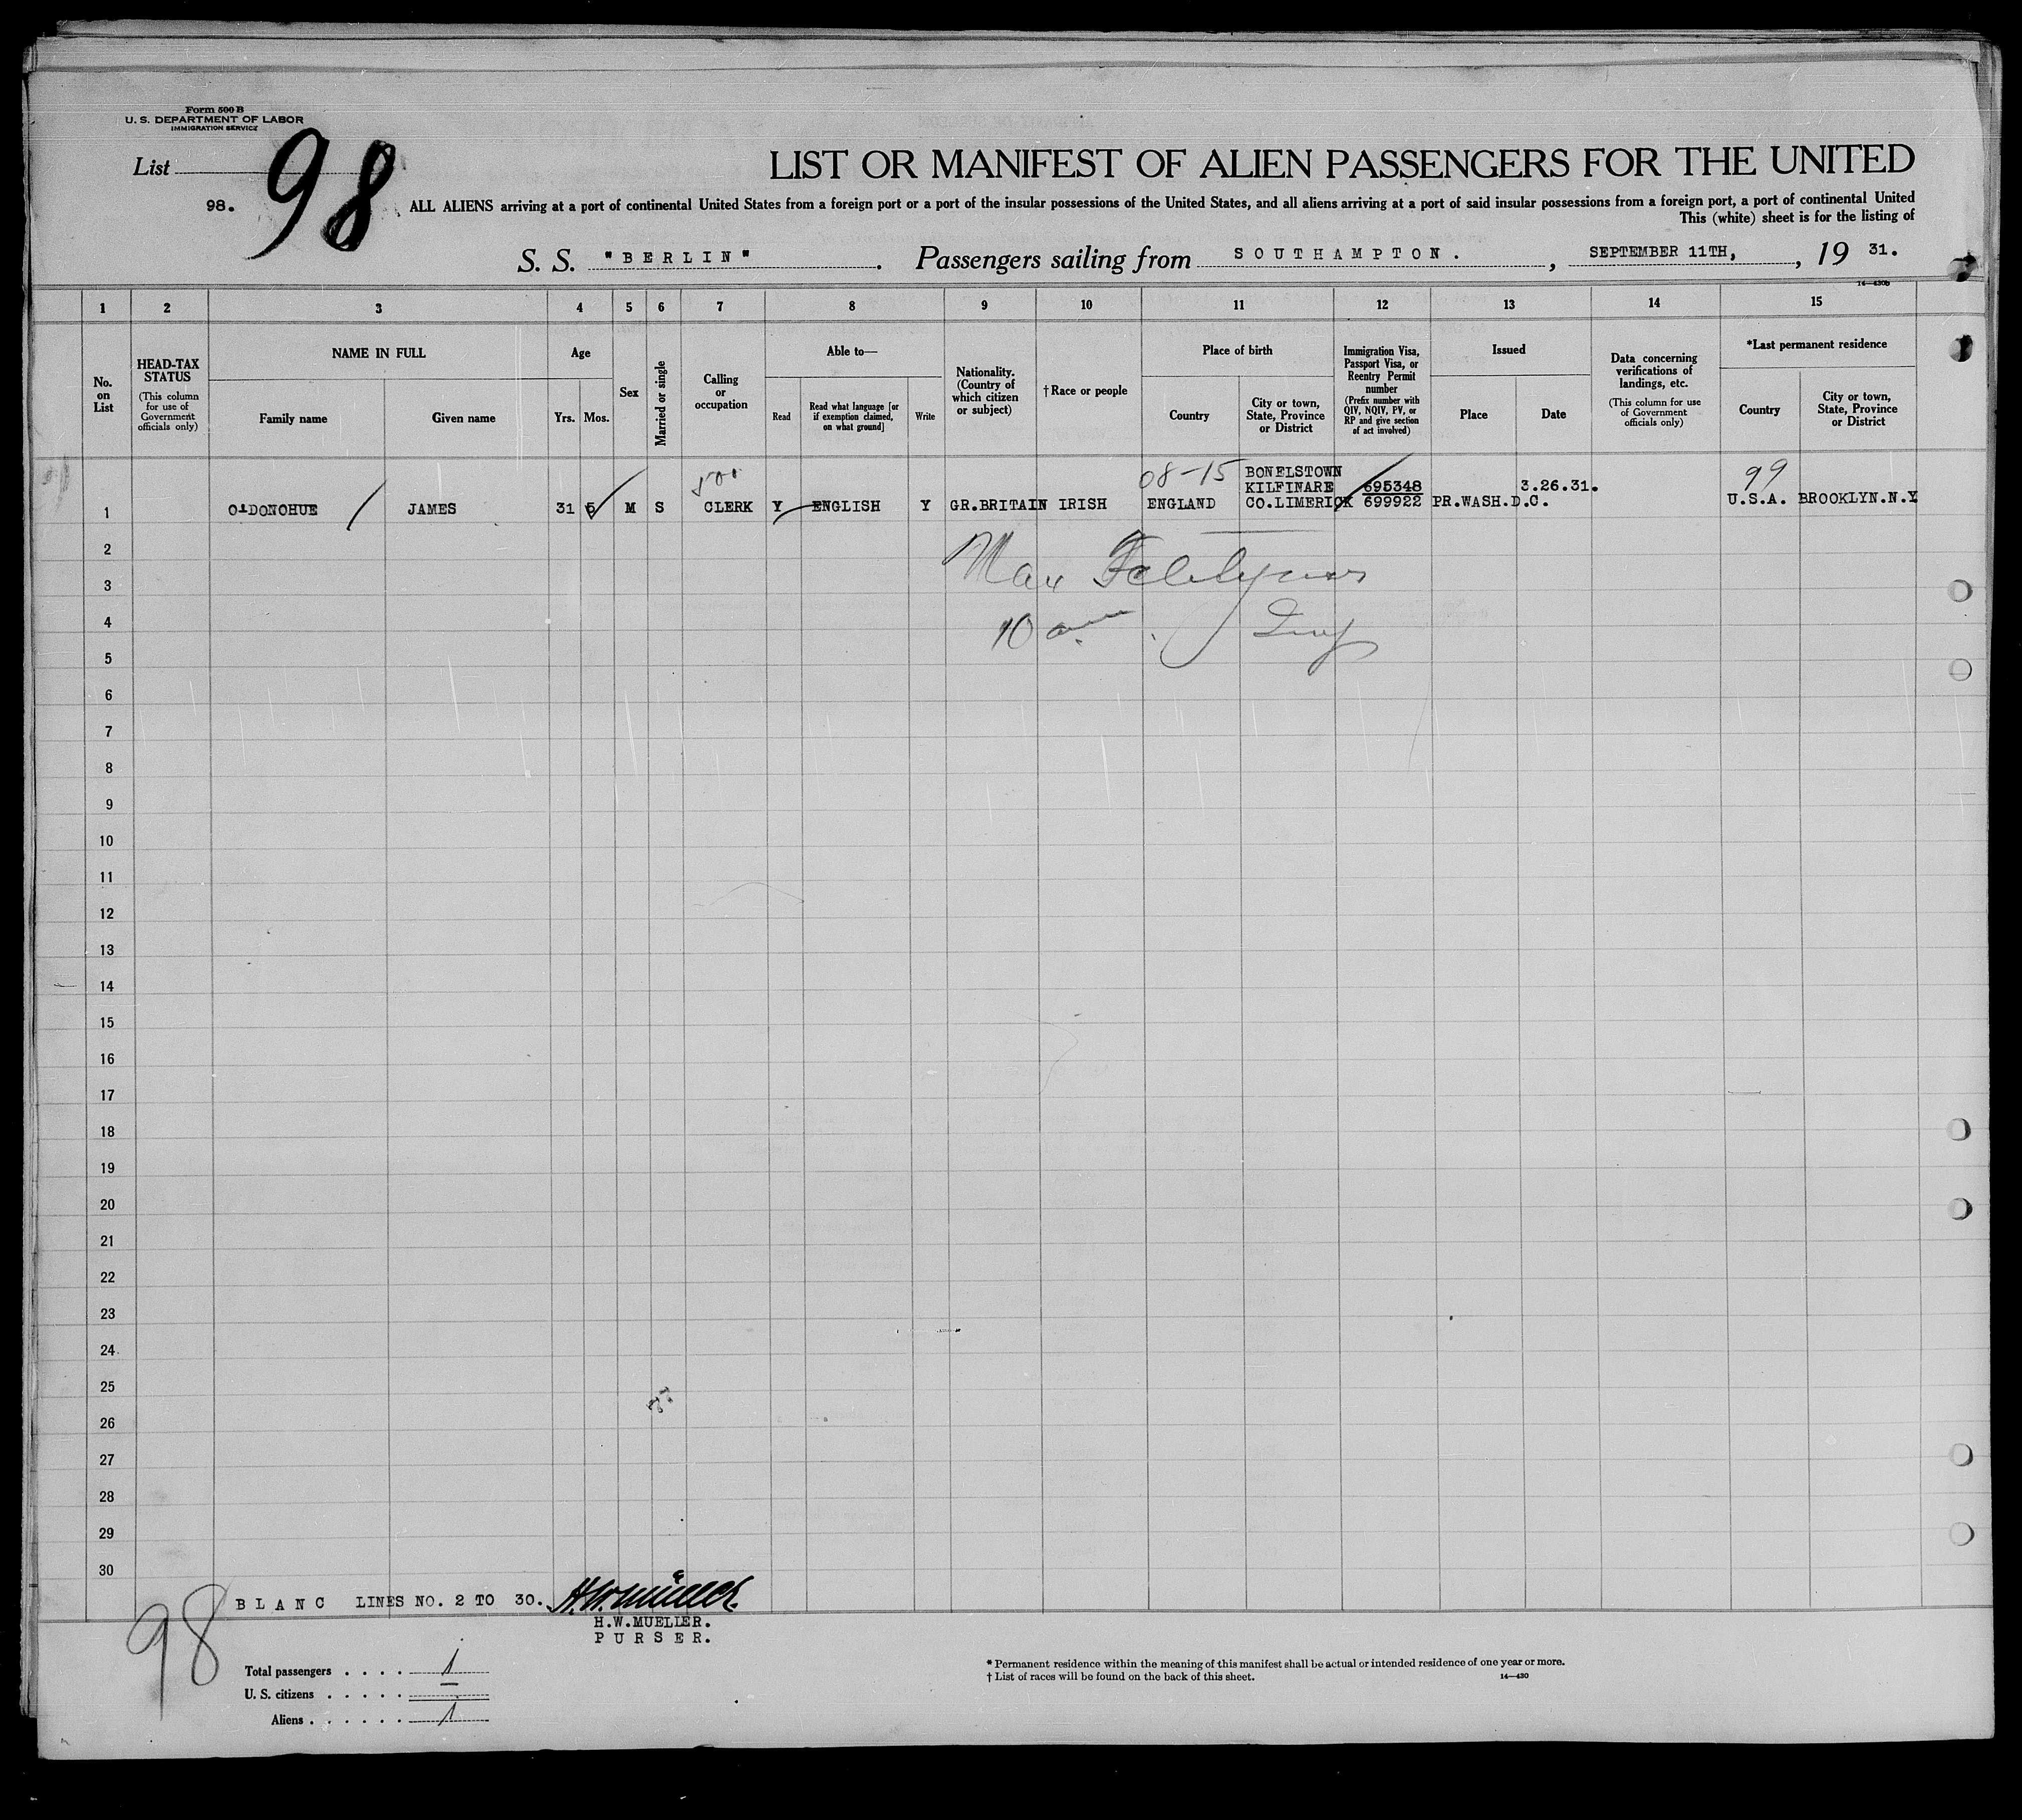 Form 500 B
U. S. DEPARTMENT OF LABOR
IMMIGRATION SERVICE
List
98.
98
LIST OR MANIFEST OF ALIEN PASSENGERS FOR THE UNITED
ALL ALIENS arriving at a port of continental United States from a foreign port or a port of the insular possessions of the United States, and all aliens arriving at a port of said insular possessions from a foreign port, a port of continental United
This (white) sheet is for the listing of
S. S. "BERLIN" . Passengers sailing from SOUTHAMPTON. , SEPTEMBER 11TH, , 19 31.
14—430b
1 2 3 4 5 6 7 8 9 10 11 12 13 14 15
No. on List
HEAD-TAX STATUS
(This column for use of Government officials only)
NAME IN FULL
Family name Given name
Age
Yrs. Mos.
Sex
Married or single
Calling or occupation
Able to—
Read
Read what language [or if exemption claimed, on what ground]
Write
Nationality. (Country of which citizen or subject)
† Race or people
Place of birth
Country
City or town, State, Province or District
Immigration Visa, Passport Visa, or Reentry Permit number
(Prefix number with QIV, NQIV, PV, or RP and give section of act involved)
Issued
Place Date
Data concerning verifications of landings, etc.
(This column for use of Government officials only)
*Last permanent residence
Country
City or town, State, Province or District
08-15 BONELSTOWN 99
KILFINARE 695348 3.26.31.
1 O'DONOHUE JAMES 31 5 M S CLERK Y ENGLISH Y GR.BRITAIN IRISH ENGLAND CO.LIMERICK 699922 PR.WASH.D.C. U.S.A. BROOKLYN.N.Y
2
3
4
10
5
6
7
8
9
10
11
12
13
14
15
16
17
18
19
20
21
22
23
24
25
26
27
28
29
30
98
BLANC LINES NO. 2 TO 30. H.W. Mueller
H.W.MUELLER.
PURSER.
Total passengers . . . . 1
U. S. citizens . . . . .
Aliens . . . . . . 1
* Permanent residence within the meaning of this manifest shall be actual or intended residence of one year or more.
† List of races will be found on the back of this sheet. 14—430